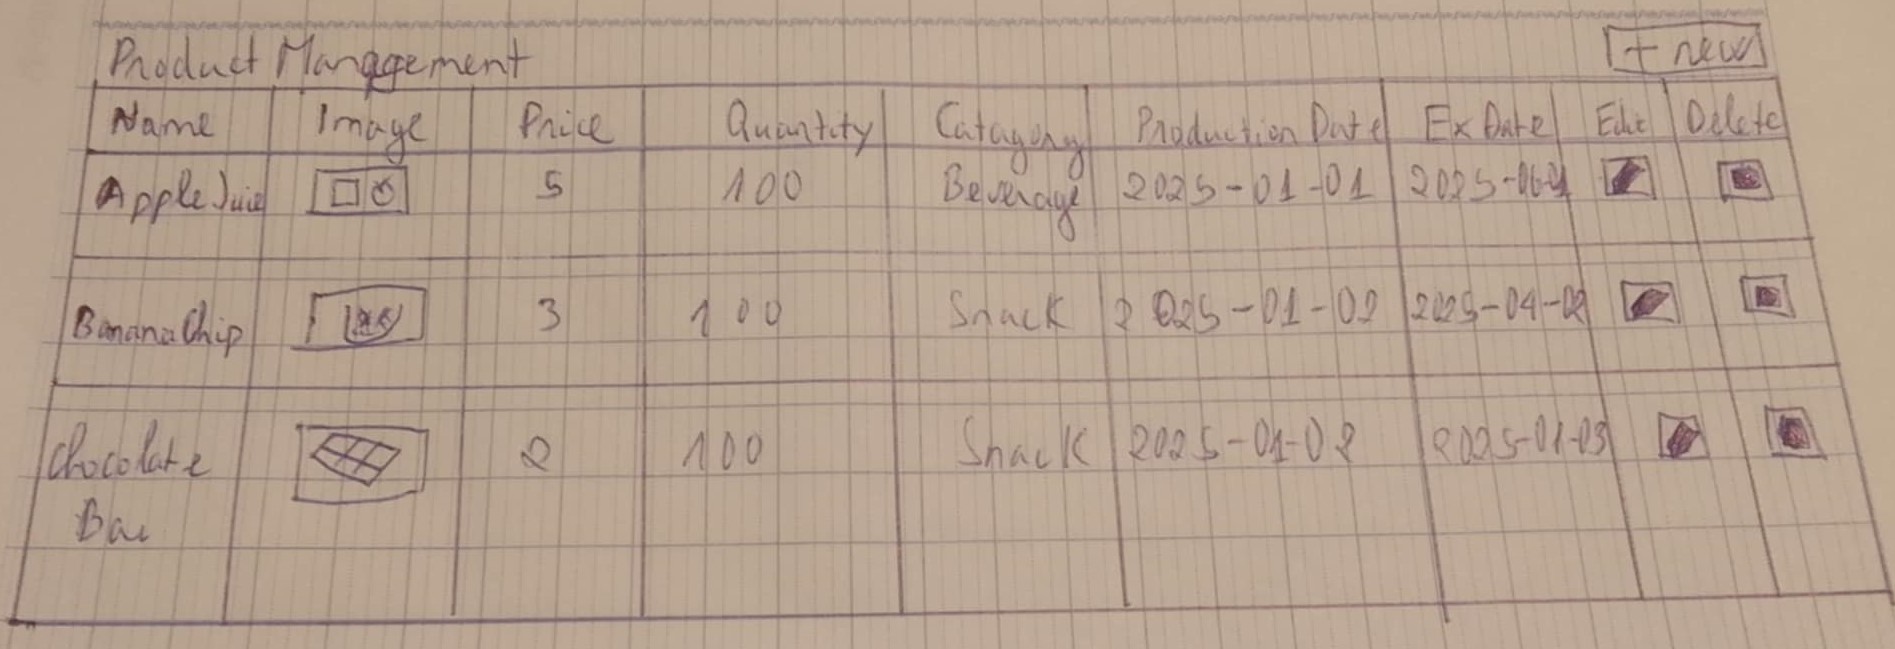 Product Management
+ new
Name Image Price Quantity Catagory Production Date Ex Date Edit Delete
Apple Juice 5 100 Beverage 2025-01-01 2025-06-01
Banana Chip 3 100 Snack 2025-01-02 2025-04-02
Chocolate 2 100 Snack 2025-01-02 2025-01-03
Bar